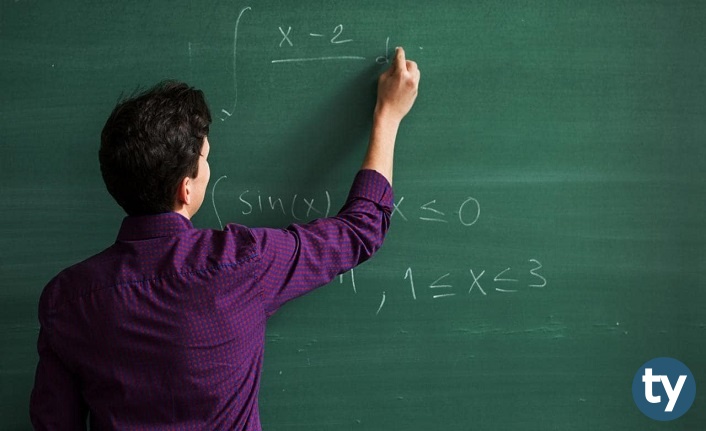 ∫ x - 2 d
sin(x) x ≤ 0
, 1 ≤ x ≤ 3
ty